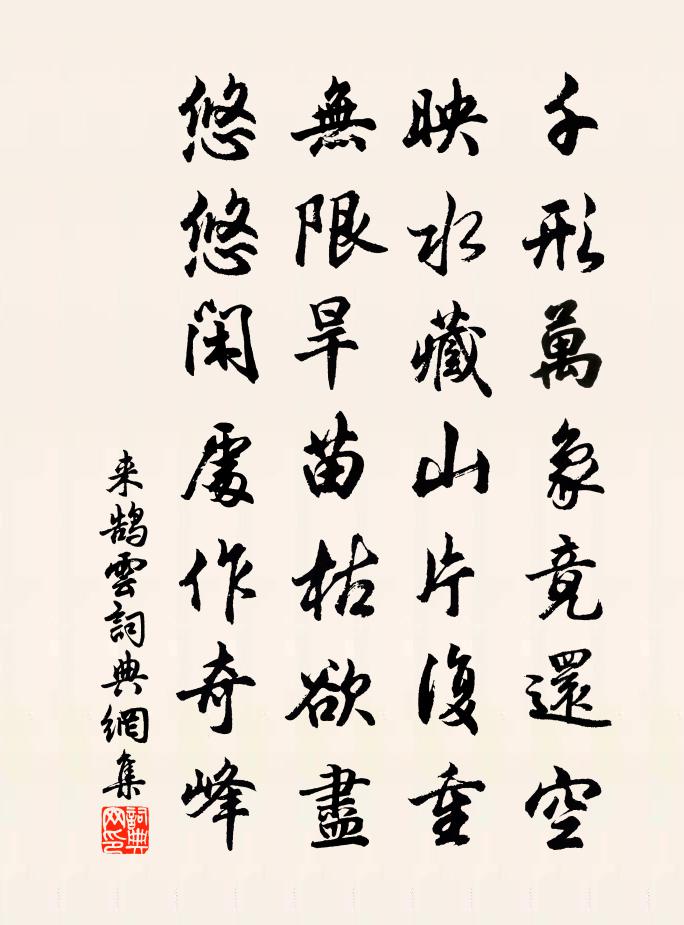 千形萬象竟還空
映水藏山片復重
無限旱苗枯欲盡
悠悠閑處作奇峰
来鵠雲詞典網集
詞典網印